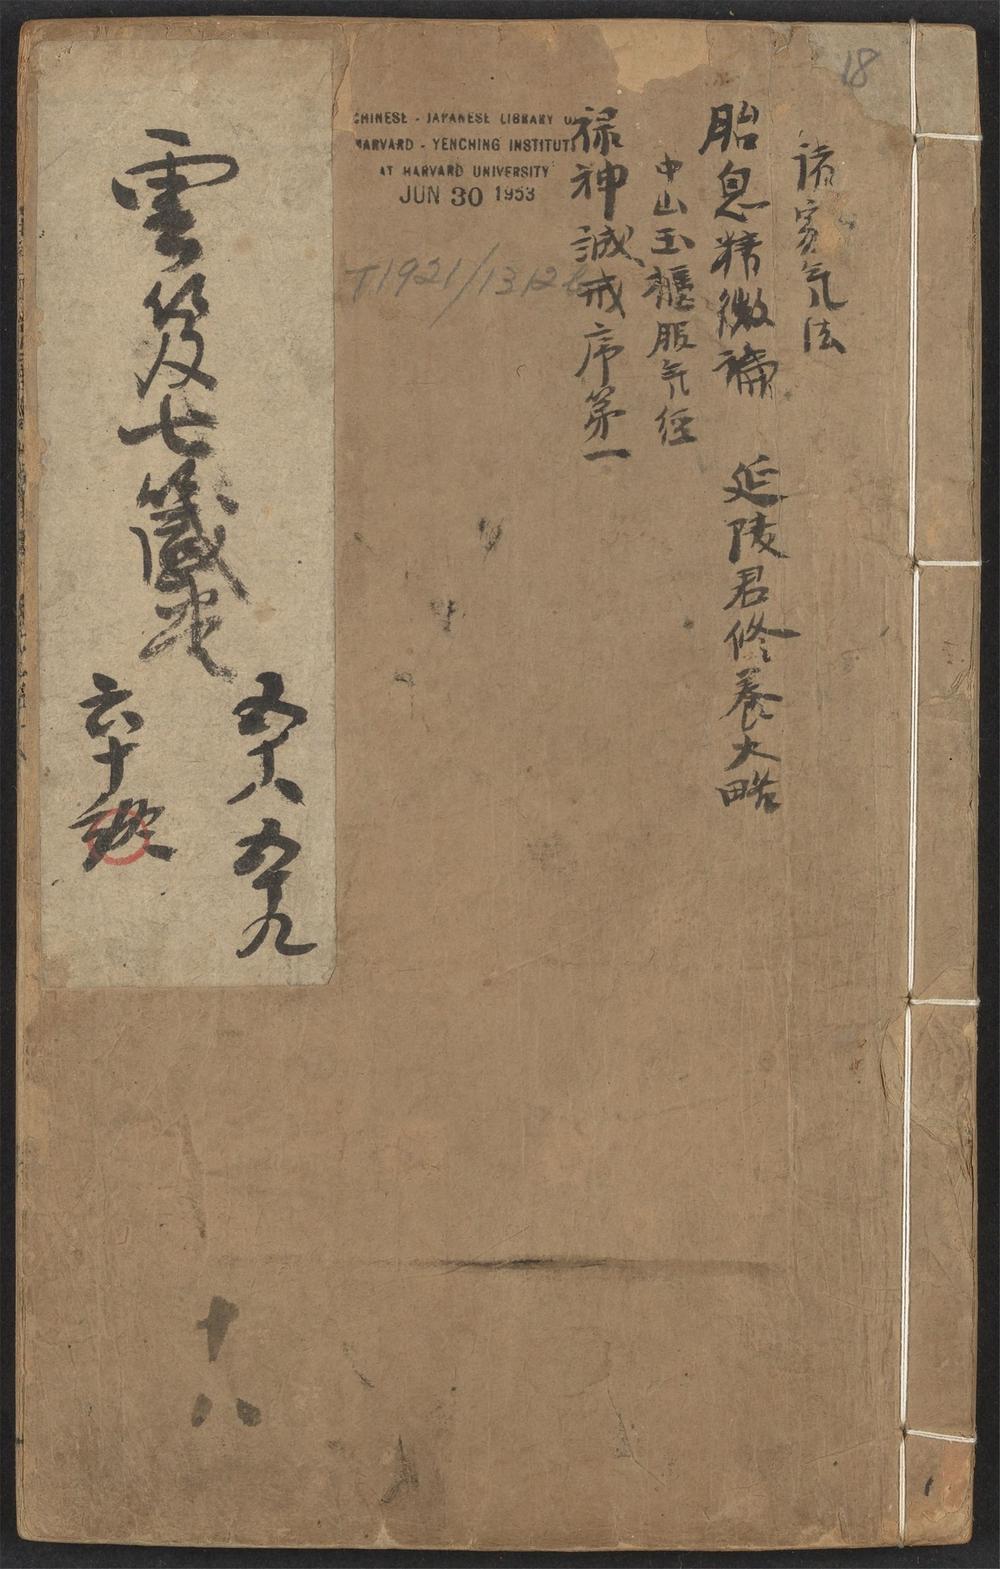 18
諸家气法
胎息精微論 延陵君修養大略
中山玉櫃服气經
祿神誡戒序第一
CHINESE - JAPANESE LIBRARY
HARVARD - YENCHING INSTITUTE
AT HARVARD UNIVERSITY
JUN 30 1953
T1921/1312
雲笈七籤卷
五十八 五十九
六十
十八